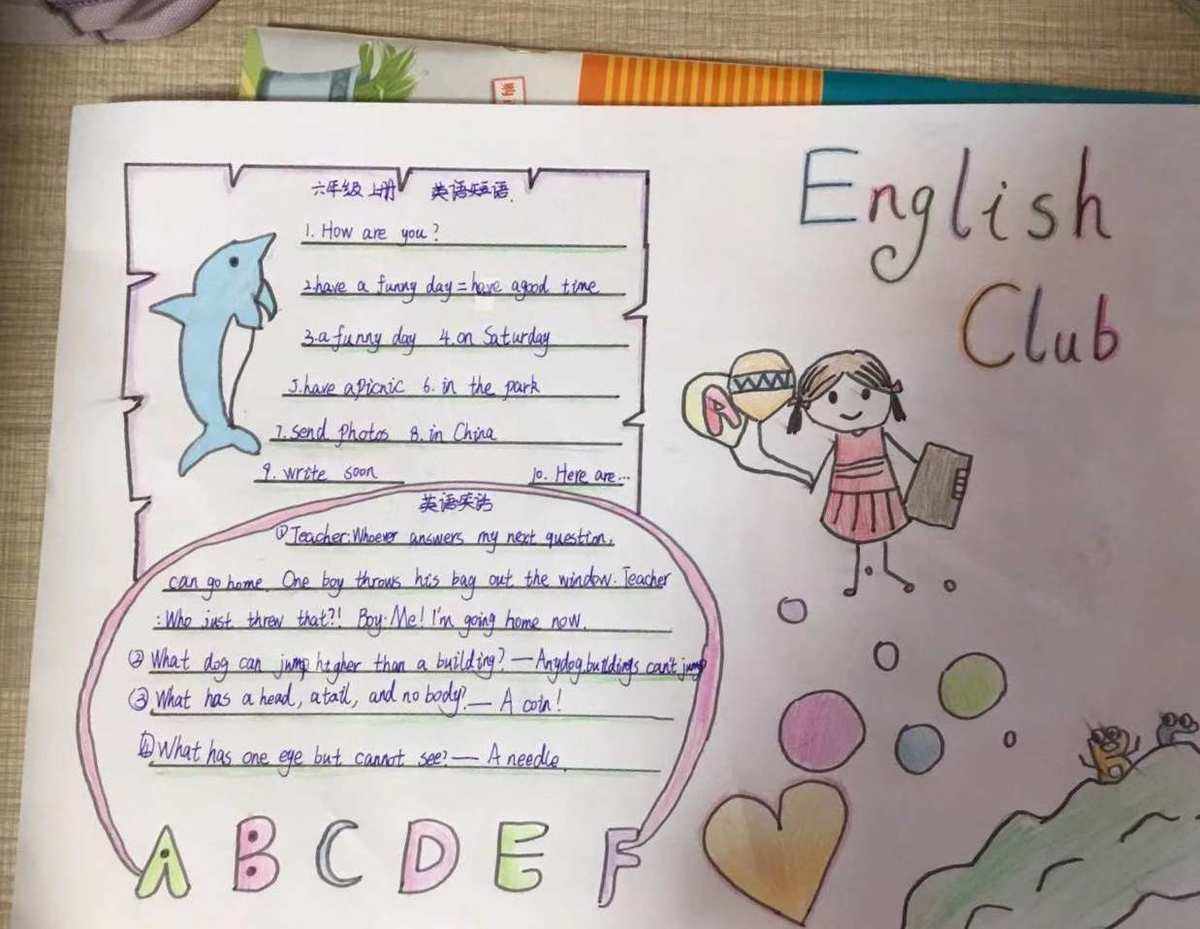 English
Club
六年级上册 英语短语.
1. How are you?
2.have a funny day=have agood time
3.a funny day 4.on Saturday
5.have aPicnic 6. in the park
7.send Photos 8.in China
9. write soon 10. Here are...
英语笑话
①Teacher:Whoever answers my next question,
can go home. One boy throws his bag out the window. Teacher
:Who just threw that?! Boy:Me! I'm going home now.
② What dog can jump higher than a building?—Anydog,buildings can't jump
③ What has a head, atail, and no body?— A coin!
④ What has one eye but cannot see?— A needle.
A B C D E F